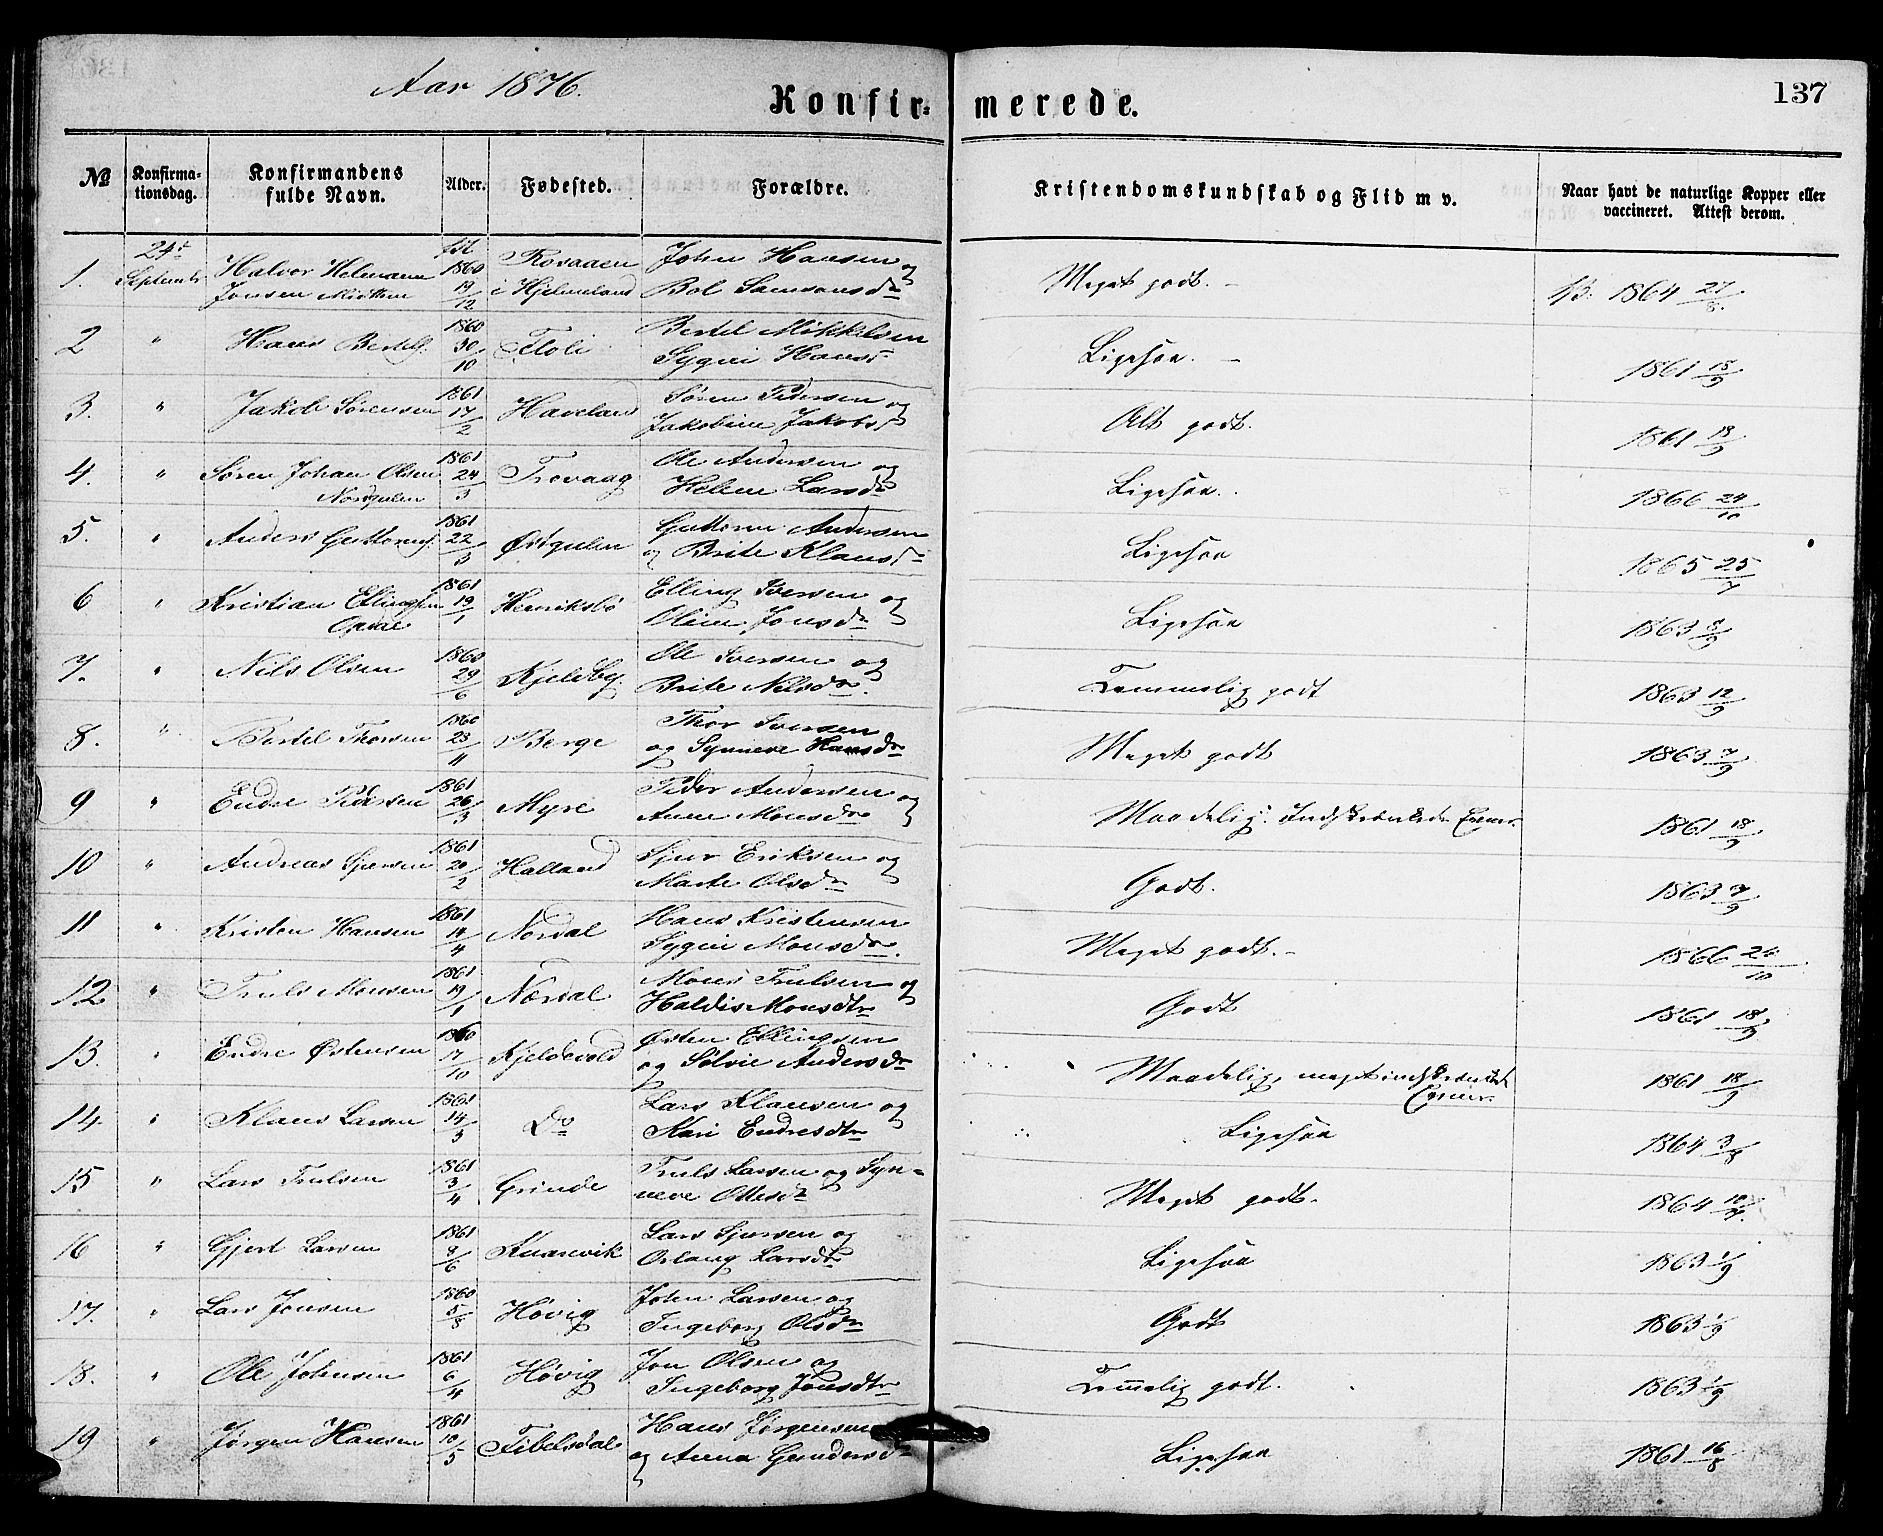 Aar 1876.
Konfir- merede.
137
№ Konfirma-tionsdag. Konfirmandens fulde Navn. Alder. Fødested. Forældre. Kristendomskundskab og Flid m v. Naar havt de naturlige Kopper eller vaccineret. Attest derom.
1. 24de Septemb Halvor Jonsen 1860 19/12 i Hjelmeland John Hansen og Bol Samsonsdr Meget godt. 1864 27/8.
2 " Hans Bertels. 1860 30/10 Floli Bertel Mikkelsen Sygni Hansd Ligesaa. 1861 18/9
3. " Jakob Sørensen 1861 17/2 Haveland Søren Pedersen og Jakobine Jakobsd Alt godt. 1861 18/9
4. " Søren Johan Olsen Nordgulen 1861 24/3 Trovaag Ole Andersen og Helene Larsdr Ligesaa. 1866 24/10
5. " Anders Guttorms. 1861 22/3 Østgulen Guttorm Andersen og Brite Klausd Ligesaa 1865 25/7
6 " Kristian Ellingsen Opdal 1861 19/1 Henriksbø Elling Iversen og Oline Jonsdr Ligesaa 1863 8/9
7. " Nils Olsen 1860 29/6 Kjeldby Ole Iversen og Brite Nilsdr. Temmelig godt 1863 12/9
8. " Bertel Thorsen 1860 23/11 Berge Thor Iversen og Synneve Hansdr Meget godt 1863 7/9
9 " Endre Pedersen 1861 26/3 Myre Peder Andersen og Anne Monsdr Maadelig. Indskrænkede Evner. 1861 18/9
10 " Andreas Sjursen 1861 20/2 Halland Sjur Eriksen og Marte Olsdr Godt. 1863 7/9
11 " Kristen Hansen 1861 14/4 Nordal Hans Kristensen Sygni Monsdr. Meget godt. 1866 24/10
12 " Truls Monsen 1861 19/1 Nordal Mons Trulsen og Haldis Monsdtr Godt 1861 18/9
13. " Endre Østensen 1860 17/10 Kjeldevold Østen Ellingsen og Sølvie Andersdr Maadelig, meget indskrænket Evner. 1861 18/9
14. " Klaus Larsen 1861 14/3 Do Lars Klausen og Kari Endresdtr Ligesaa 1864 3/8
15 " Lars Trulsen 1861 3/4 Grinde Truls Larsen og Synneve Ottesdr Meget godt. 1864 10/7.
16 " Gjert Larsen 1861 9/6 Knarevik Lars Sjursen og Larsdtr Ligesaa 1863 1/9
17. " Lars Jonsen 1860 5/8 Høvig John Larsen og Ingeborg Olsdr Godt 1863 1/9
18. " Ole Johnsen 1861 6/4 Høvig Jon Olsen og Ingeborg Jonsdtr Temmelig godt. 1863 1/9
19 " Jørgen Hansen 1861 10/5 Fibelsdal Hans Jørgensen og Anna Gundersdr Ligesaa 1861 16/8